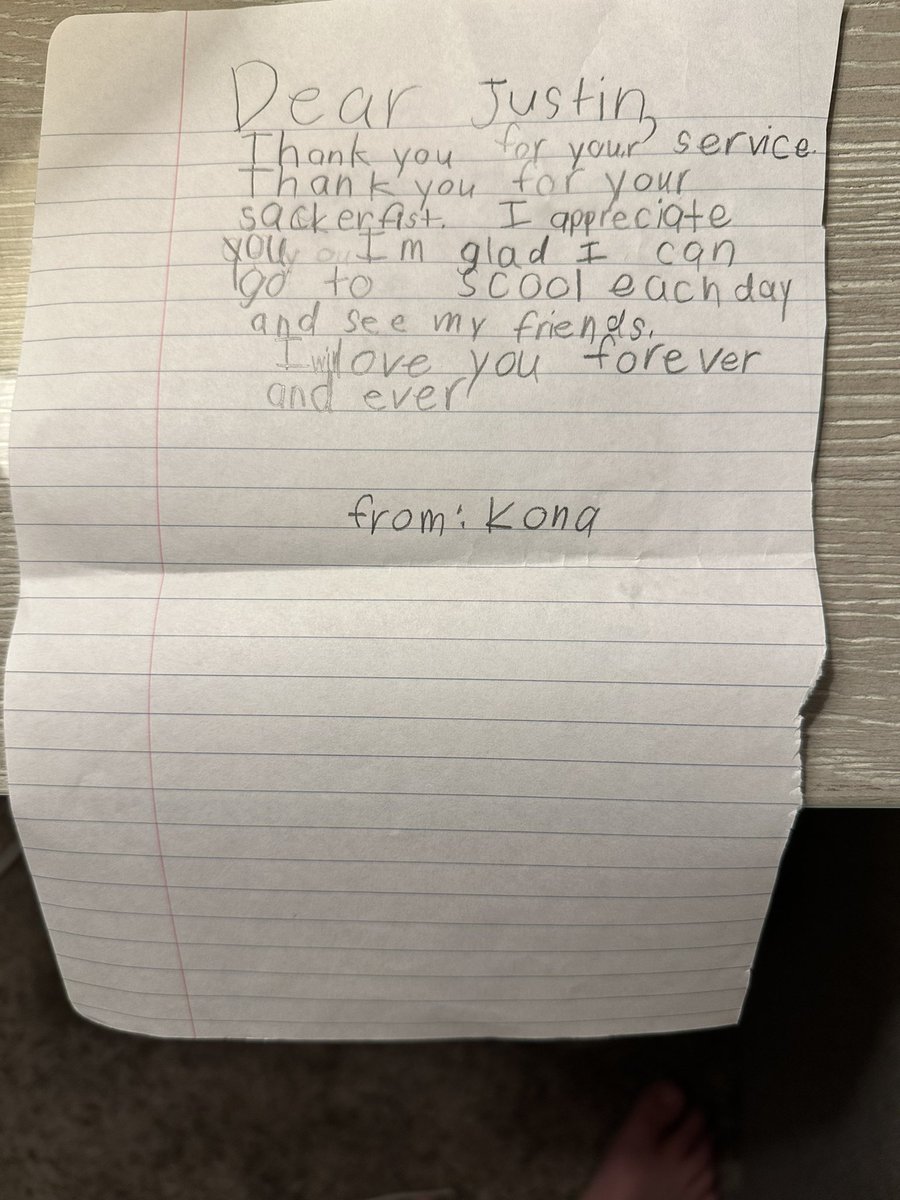 Dear Justin,
Thank you for your service.
Thank you for your
sackerfist. I appreciate
you I'm glad I can
go to scool each day
and see my friends.
I will love you forever
and ever
from: Kona